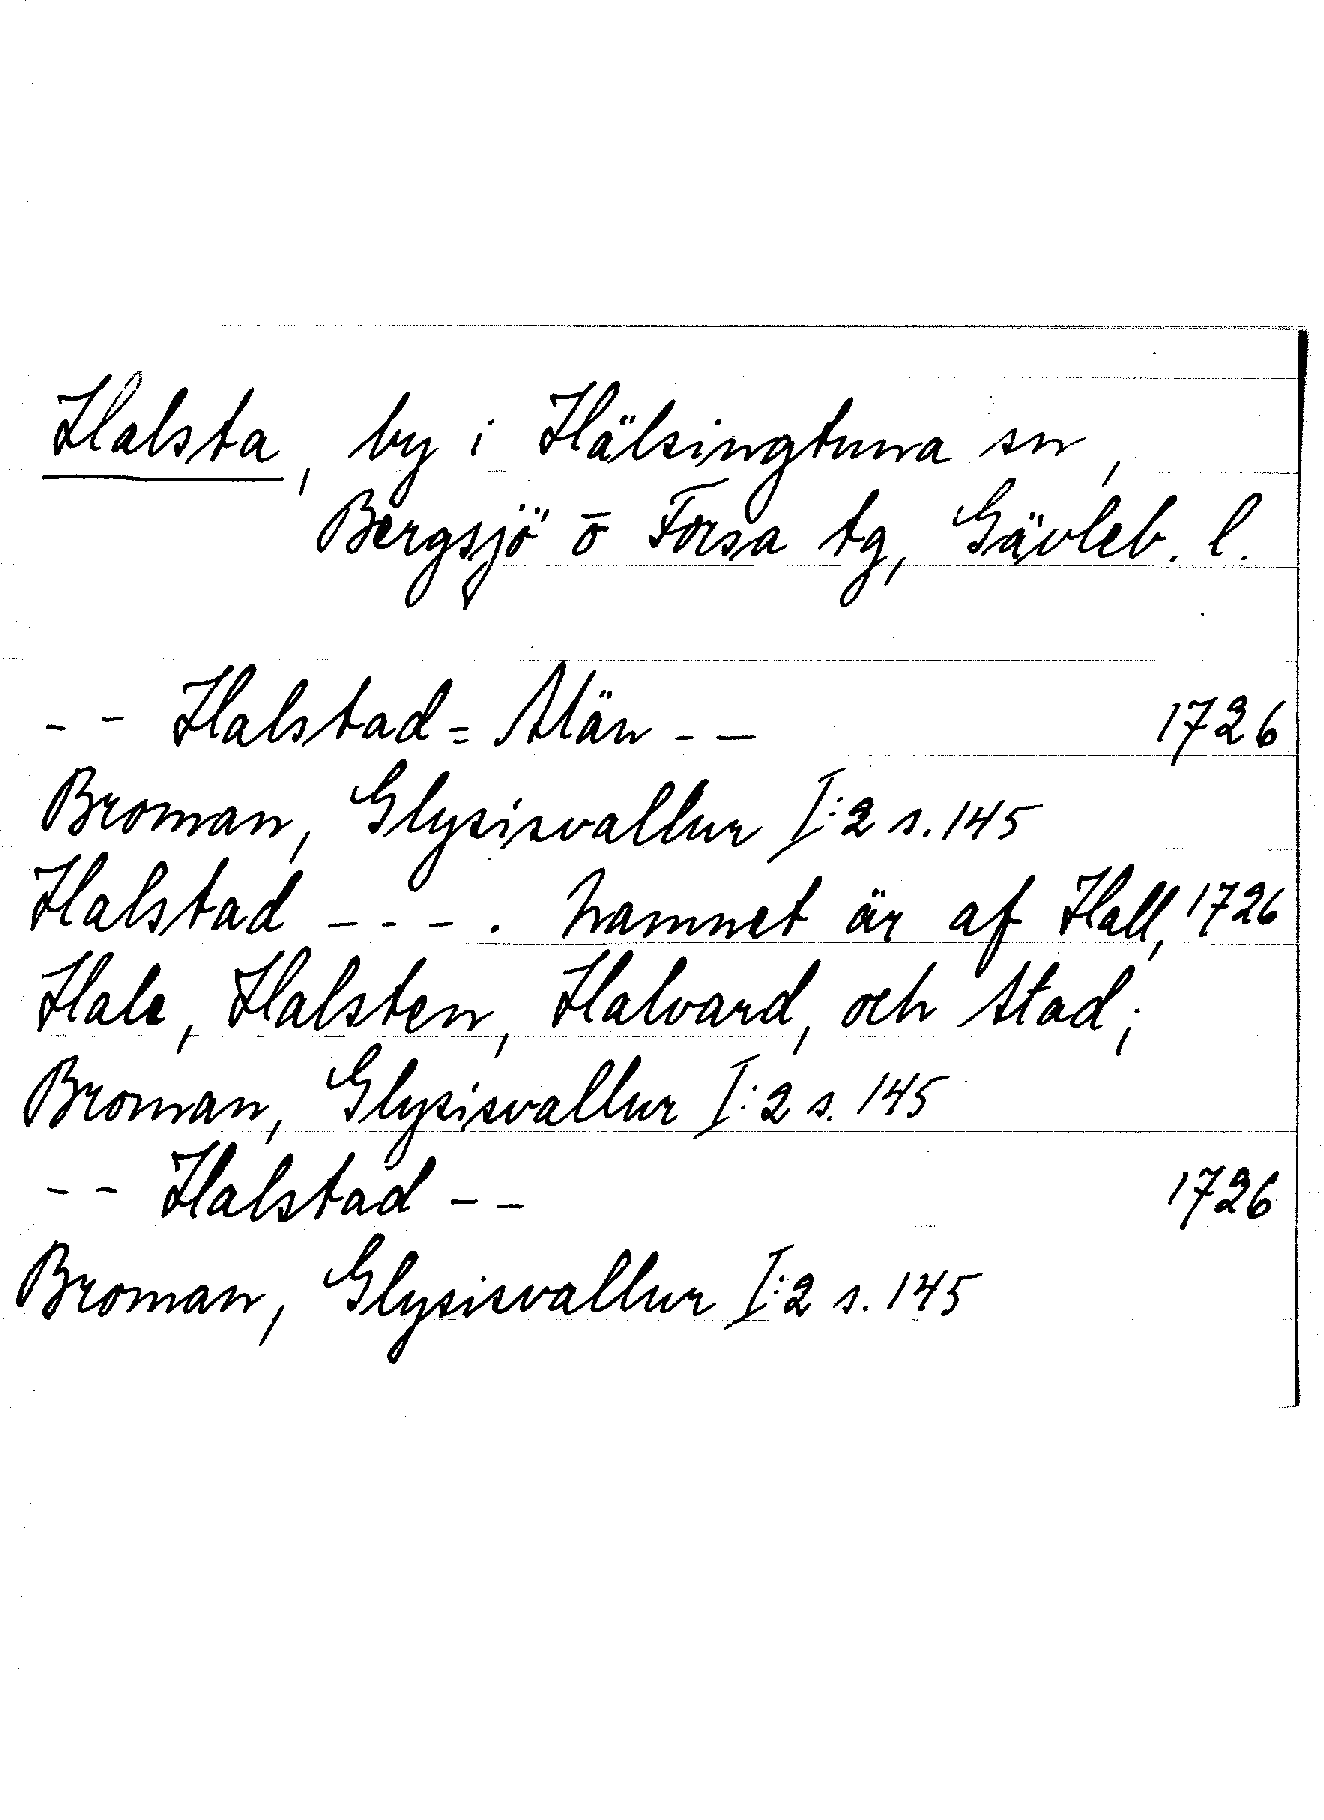 Halsta, by i Hälsingtuna sn,
Bergsjö o Forsa tg, Gävleb. l.
-- Halstad= Män -- 1726
Broman, Glysisvallur I:2 s. 145
Halstad ---. Namnet är af Hall, 1726
Hale, Halsten, Halvard, och Stad;
Broman, Glysisvallur I:2 s. 145
-- Halstad -- 1726
Broman, Glysisvallur I:2 s. 145